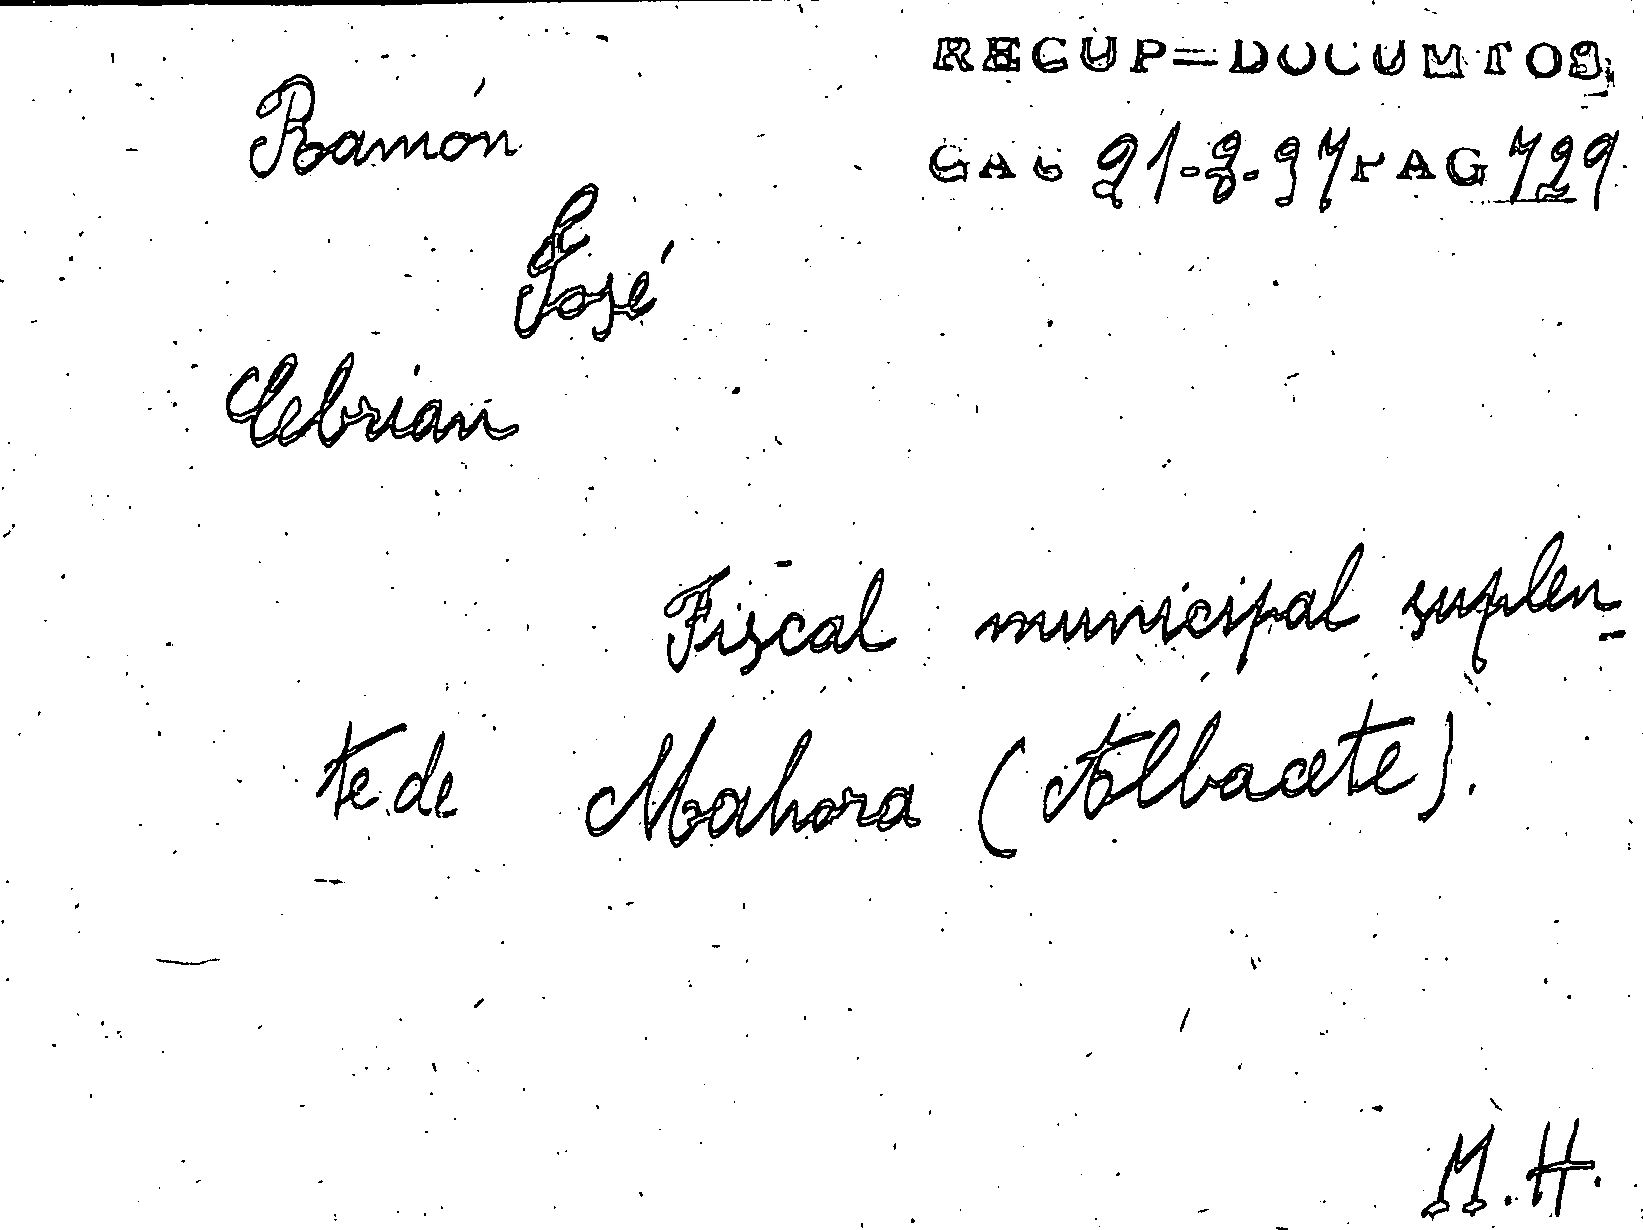 RECUP=DOCUMTOS
GAC 21-8-37 PAG 729
Ramón
José
Cebrian
Fiscal municipal suplen-
te de Mahora (Albacete).
M.H.